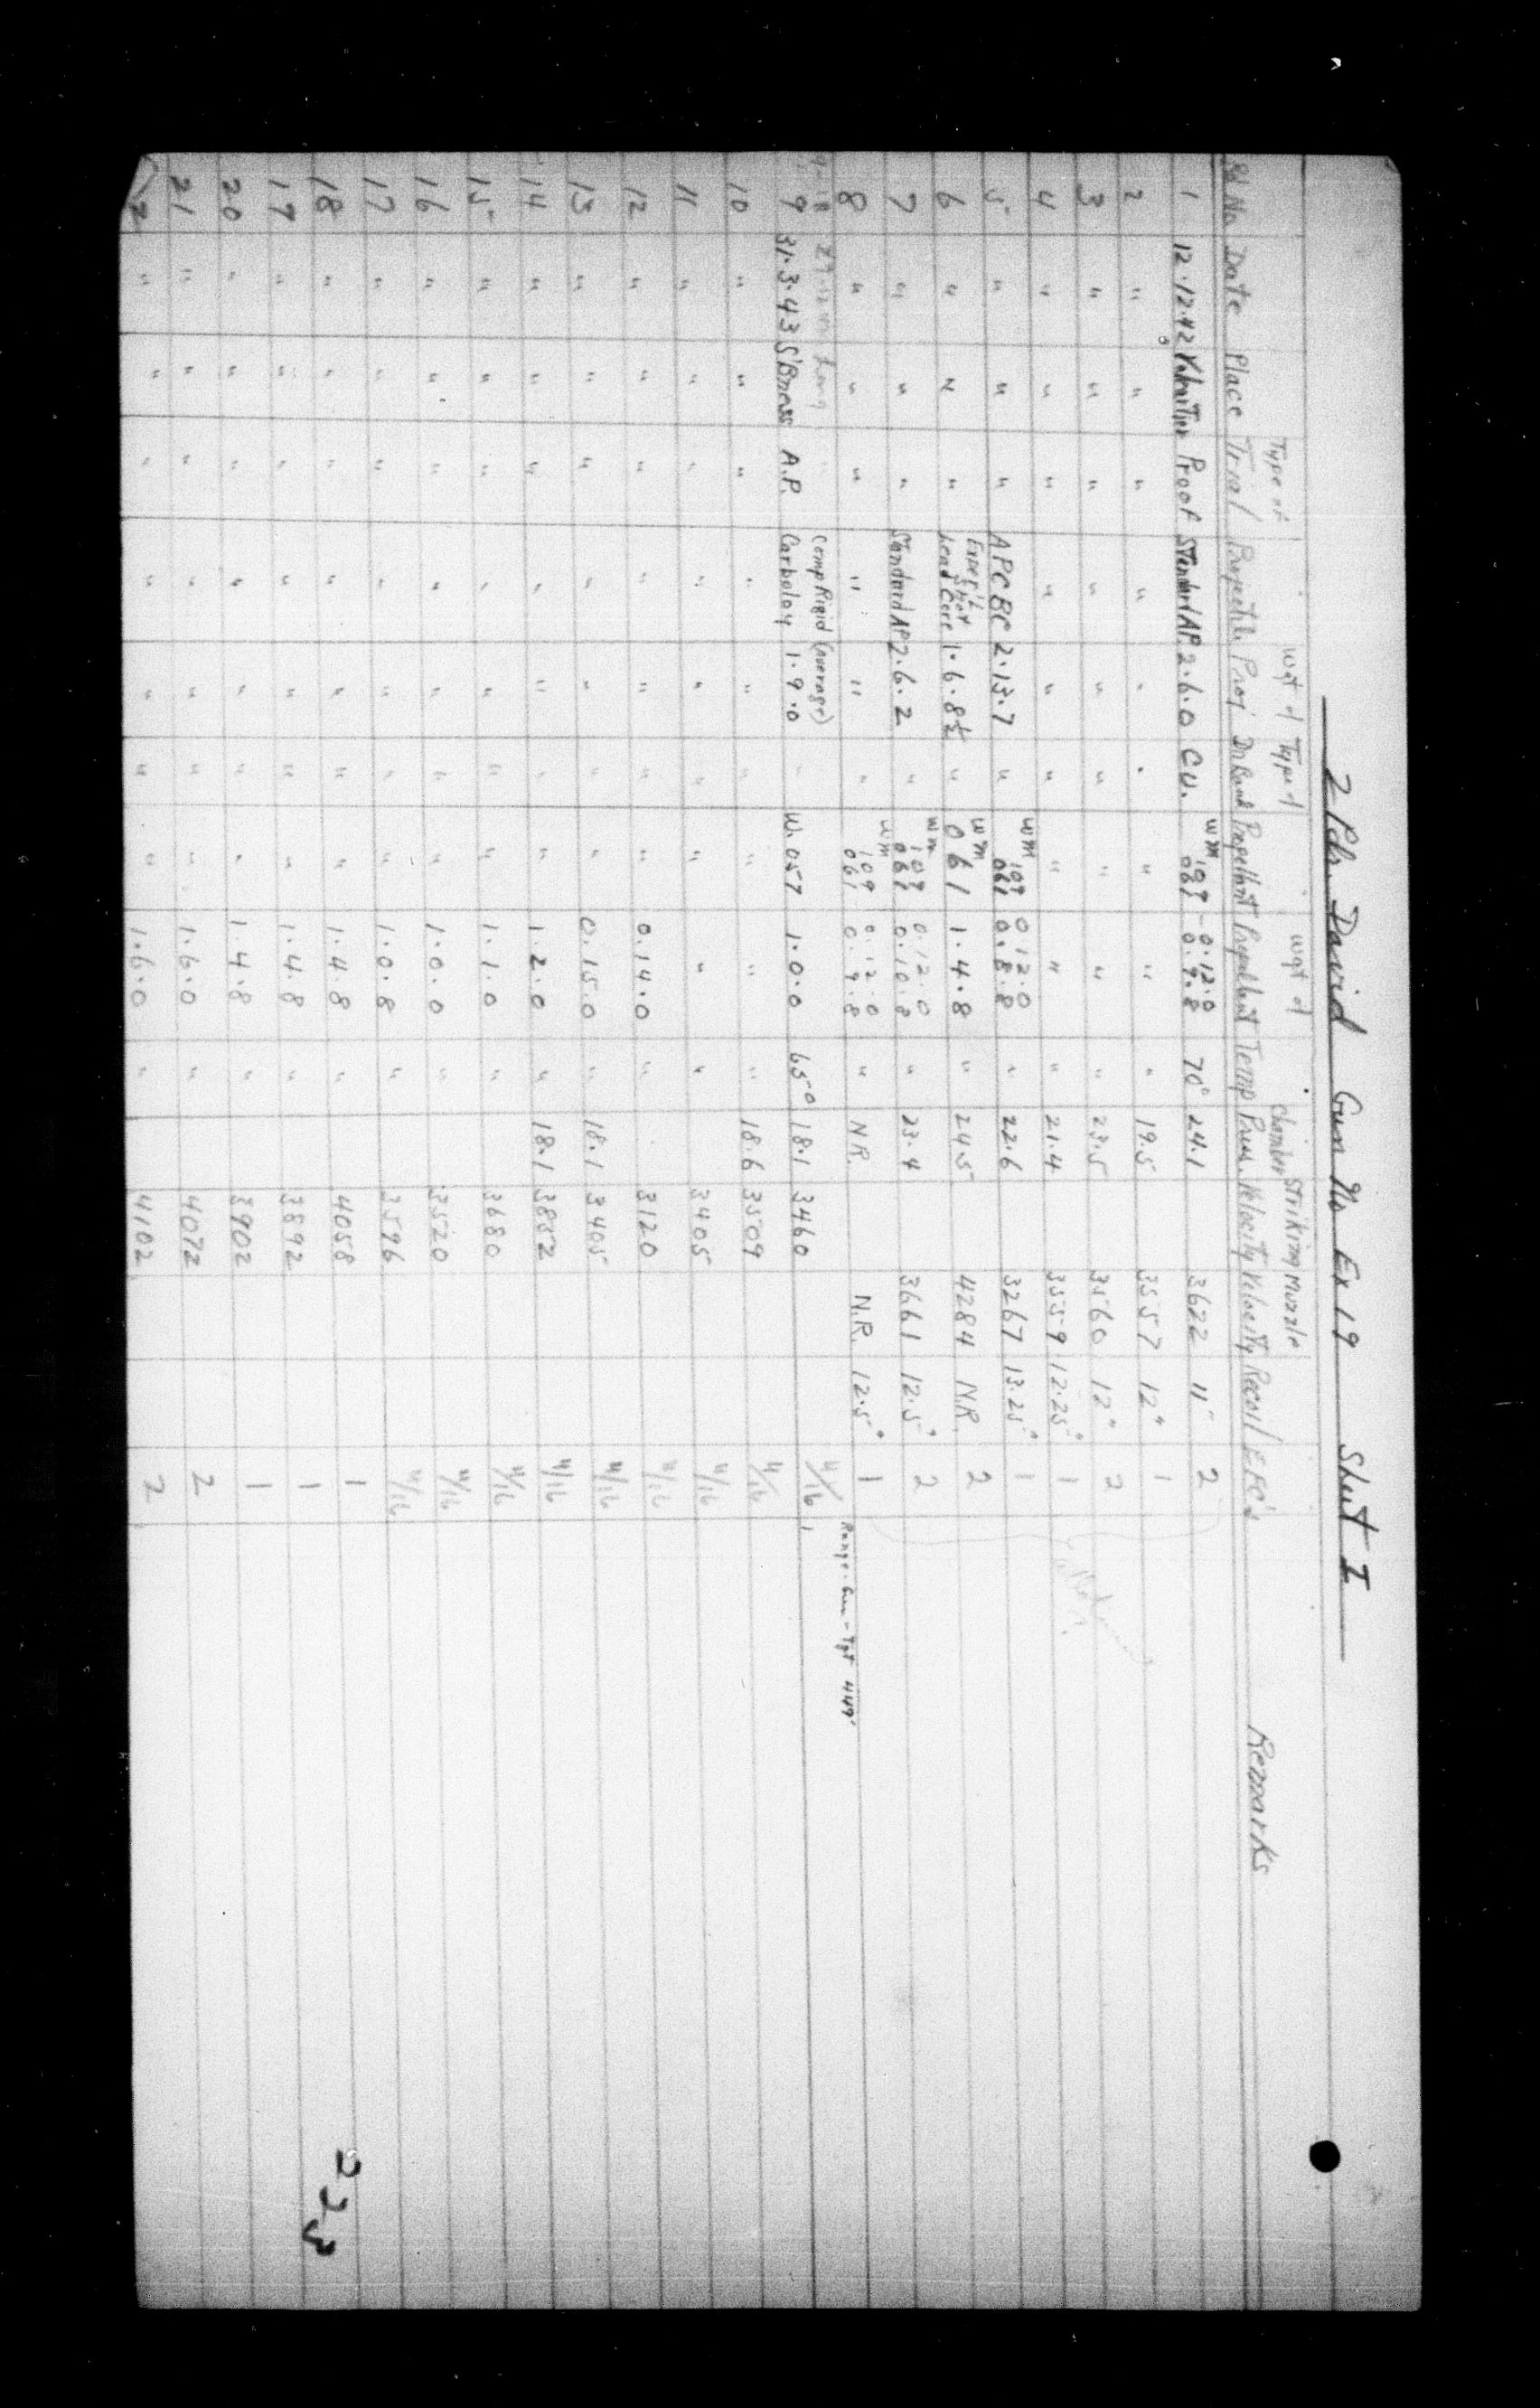 2 Pdr. David Gun No Ex 19 Sheet I
Type of Wgt of Type of Wgt of Chamber Striking Muzzle
Rd No Date Place Trial Projectile Proj Dr Band Propellant Propellant Temp Pres. Velocity Velocity Recoil E.F.C's Remarks
1 12.12.42 Valcartier Proof Standard AP 2.6.0 CU. WM 109 061 0.12.0 0.9.8 70° 24.1 3622 11" 2
2 " " " " " " " " " 19.5 3557 12" 1
3 " " " " " " " " " 23.5 3560 12" 2
4 " " " " " " " " " 21.4 3559 12.25" 1
5 " " " APCBC 2.13.7 " WM 109 061 0.12.0 0.8.8 " 22.6 3267 13.25" 1
6 " " " Exper'l Shot Lead Core 1.6.8½ " WM 061 1.4.8 " 24.5 4284 N.R. 2
7 " " " Standard AP 2.6.2 " WM 109 061 0.12.0 0.10.8 " 23.4 3661 12.5" 2
8 " " " " " " WM 109 061 0.12.0 0.9.8 " N.R. N.R. 12.5" 1
Range. Gun - Tgt 449'
9 31.3.43 S'Brass A.P. Comp Rigid (average) Carboloy 1.9.0 " W.057 1.0.0 65° 18.1 3460 4/16
10 " " " " " " " " " 18.6 3509 4/16
11 " " " " " " " " " 3405 4/16
12 " " " " " " " 0.14.0 " 3120 4/16
13 " " " " " " " 0.15.0 " 18.1 3405 4/16
14 " " " " " " " 1.2.0 " 18.1 3852 4/16
15 " " " " " " " 1.1.0 " 3680 4/16
16 " " " " " " " 1.0.0 " 3520 4/16
17 " " " " " " " 1.0.8 " 3596 4/16
18 " " " " " " " 1.4.8 " 4058 1
19 " " " " " " " 1.4.8 " 3892 1
20 " " " " " " " 1.4.8 " 3902 1
21 " " " " " " " 1.6.0 " 4072 2
22 " " " " " " " 1.6.0 " 4102 2
223